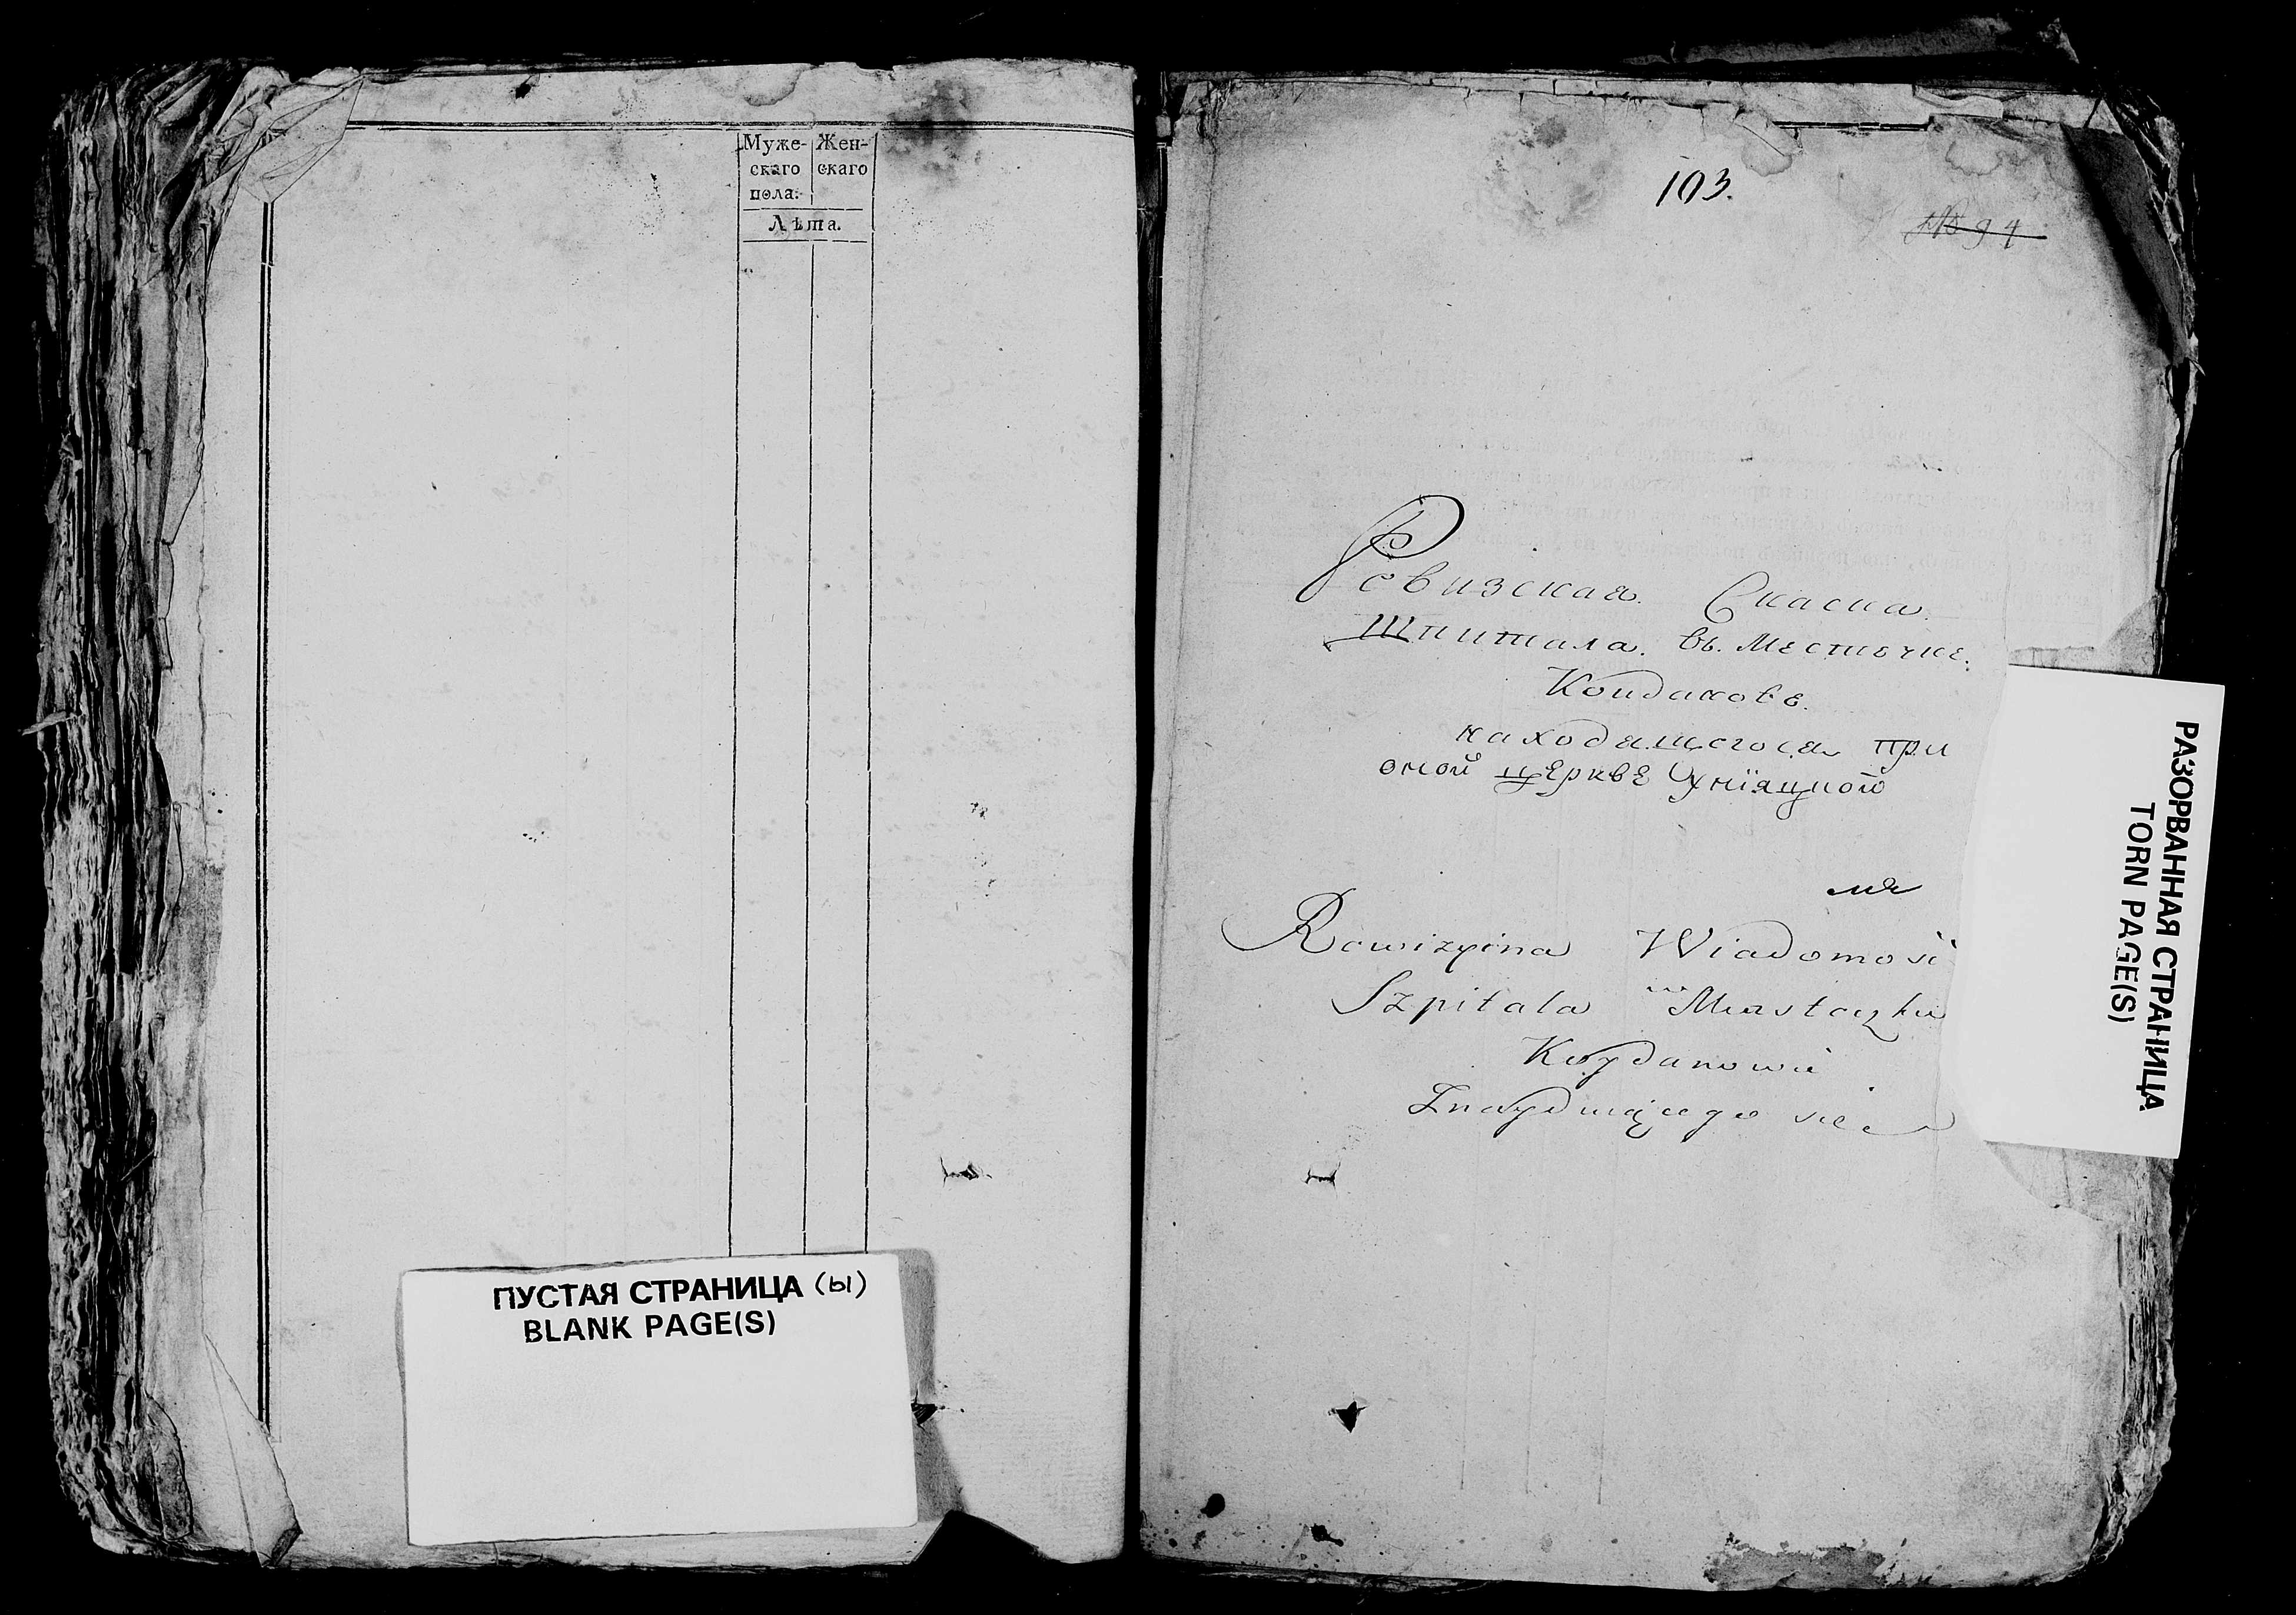 Муже- Жен-
скаго скаго
пола.
Лѣта.
ПУСТАЯ СТРАНИЦА (ы)
BLANK PAGE(S)
103.
№ 94
Ревизская Скаска
Шпитала. въ. Местечке.
Койданове.
находящегося при
оной церкве Униацкой
Rewizyina Wiadomość
Szpitala w Miasteczku
Koydanowie
Znayduiącego się
РАЗОРВАННАЯ СТРАНИЦА
TORN PAGE(S)